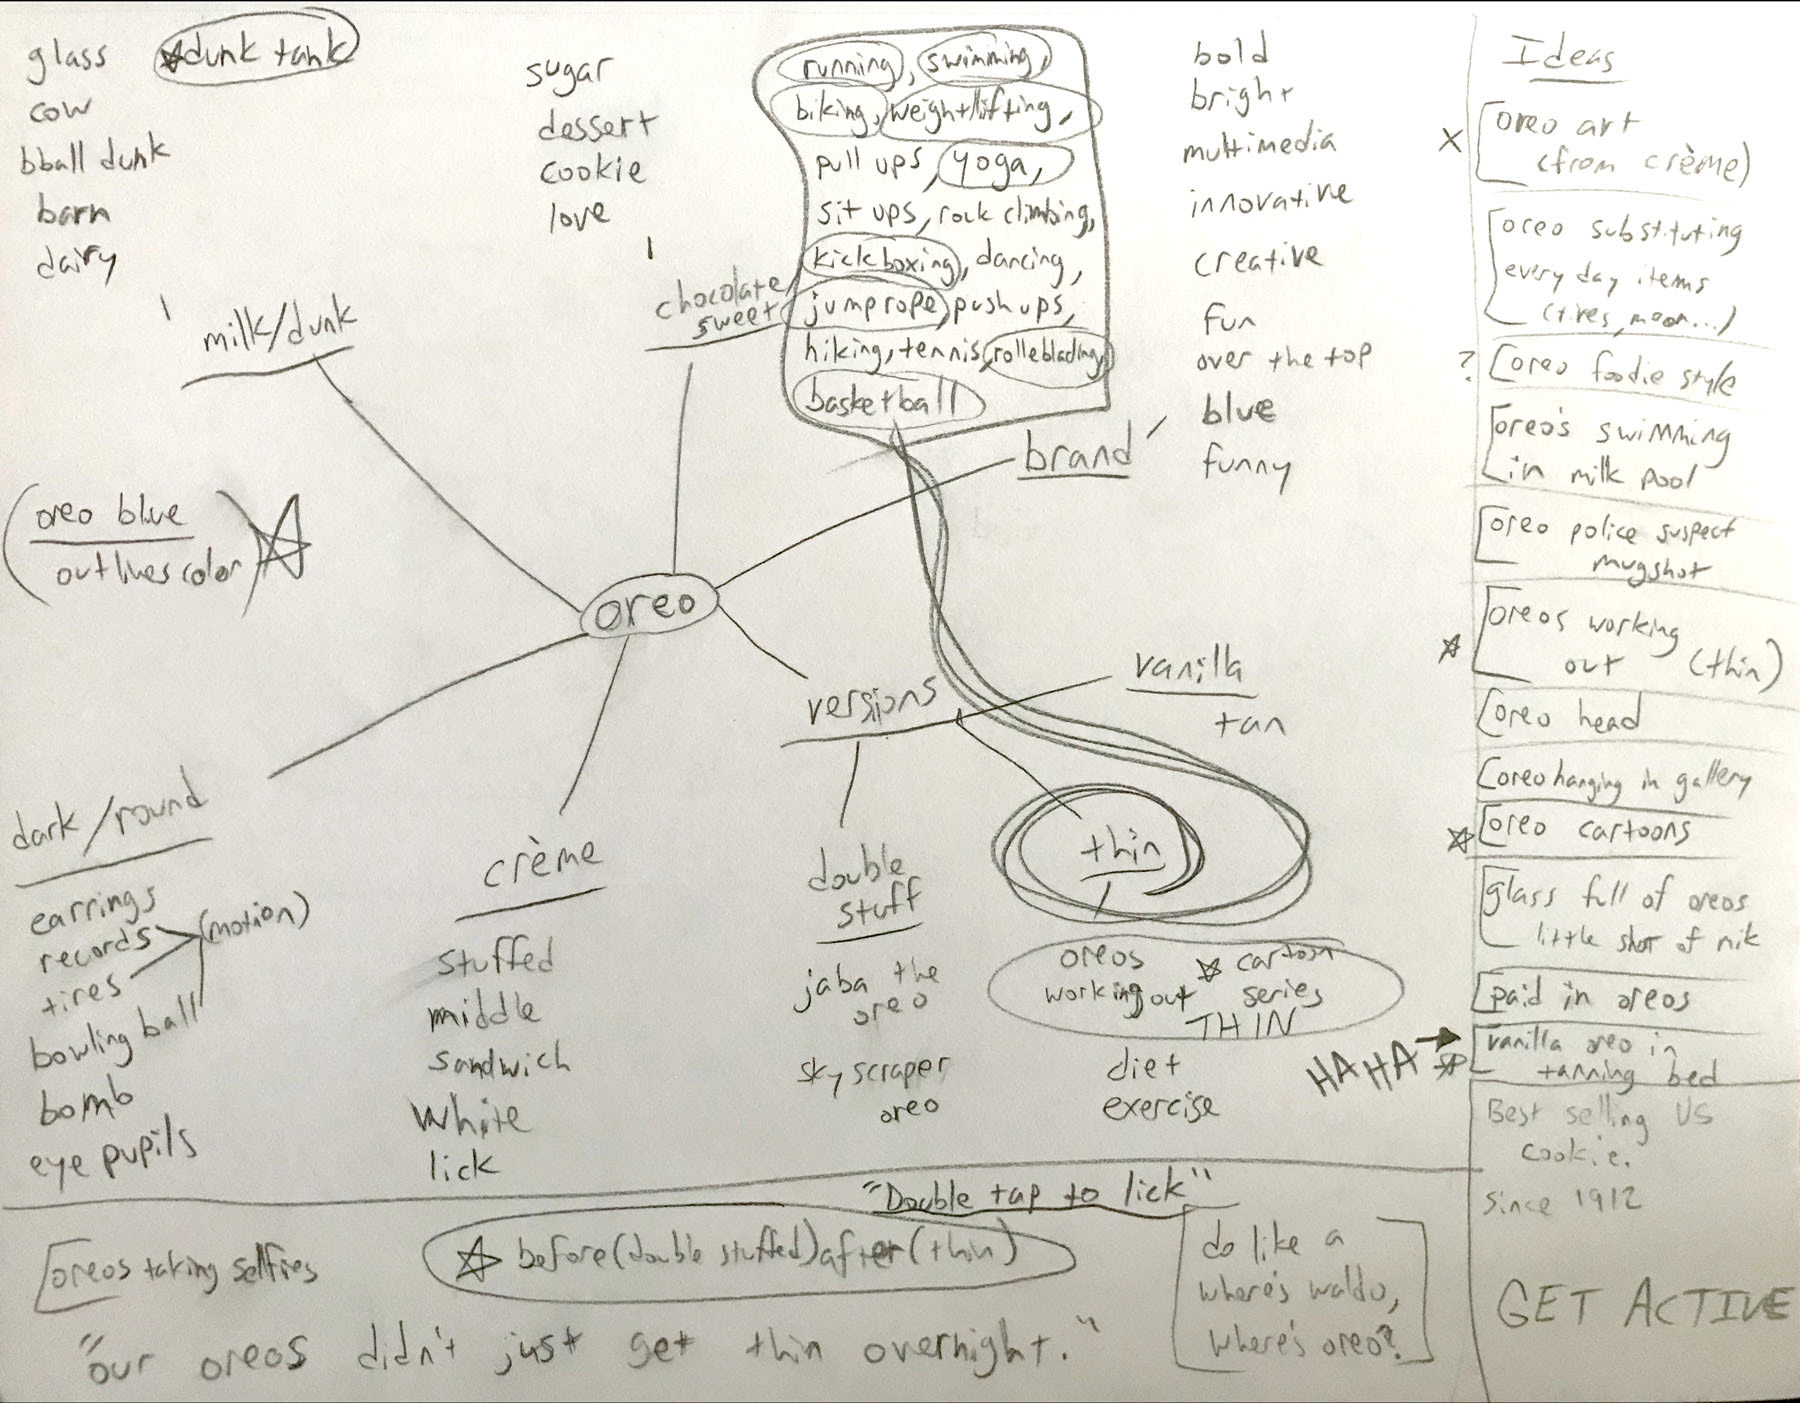 glass
☆dunk tank
cow
bball dunk
barn
dairy
milk/dunk
sugar
dessert
cookie
love
chocolate,
sweet
running, swimming,
biking, weightlifting,
pull ups, yoga,
sit ups, rock climbing,
kickboxing, dancing,
jumprope, push ups,
hiking, tennis, rolleblading,
basketball
brand
bold
bright
multimedia
innovative
creative
fun
over the top
blue
funny
(oreo blue
outlines color) ☆
oreo
versions
vanilla
tan
thin
oreos
working out
☆ cartoon
series
THIN
diet
exercise
double
stuff
jaba the
oreo
sky scraper
oreo
crème
stuffed
middle
sandwich
white
lick
dark/round
earrings
records
tires
(motion)
bowling ball
bomb
eye pupils
Ideas
x [oreo art
(from crème)
[oreo substituting
every day items
(tires, moon...)
? [oreo foodie style
[oreo's swimming
in milk pool
[oreo police suspect
mugshot
☆ [oreos working
out (thin)
[oreo head
[oreo hanging in gallery
☆ [oreo cartoons
[glass full of oreos
little shot of milk
[paid in oreos
HAHA → ☆ [vanilla oreo in
tanning bed
Best selling US
cookie.
since 1912
GET ACTIVE
"Double tap to lick"
[oreos taking selfies
☆ before(double stuffed) after(thin)
[do like a
where's waldo,
where's oreo?]
"our oreos didn't just get thin overnight."